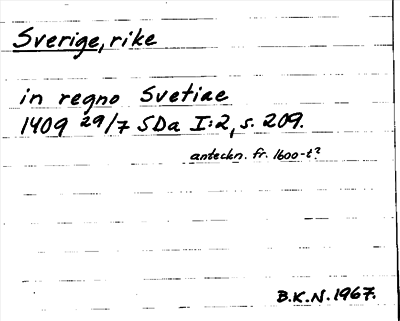 Sverige, rike
in regno Svetiae
1409 29/7 SDa I:2, s. 209.
anteckn. fr. 1600-t?
B.K.N. 1967.